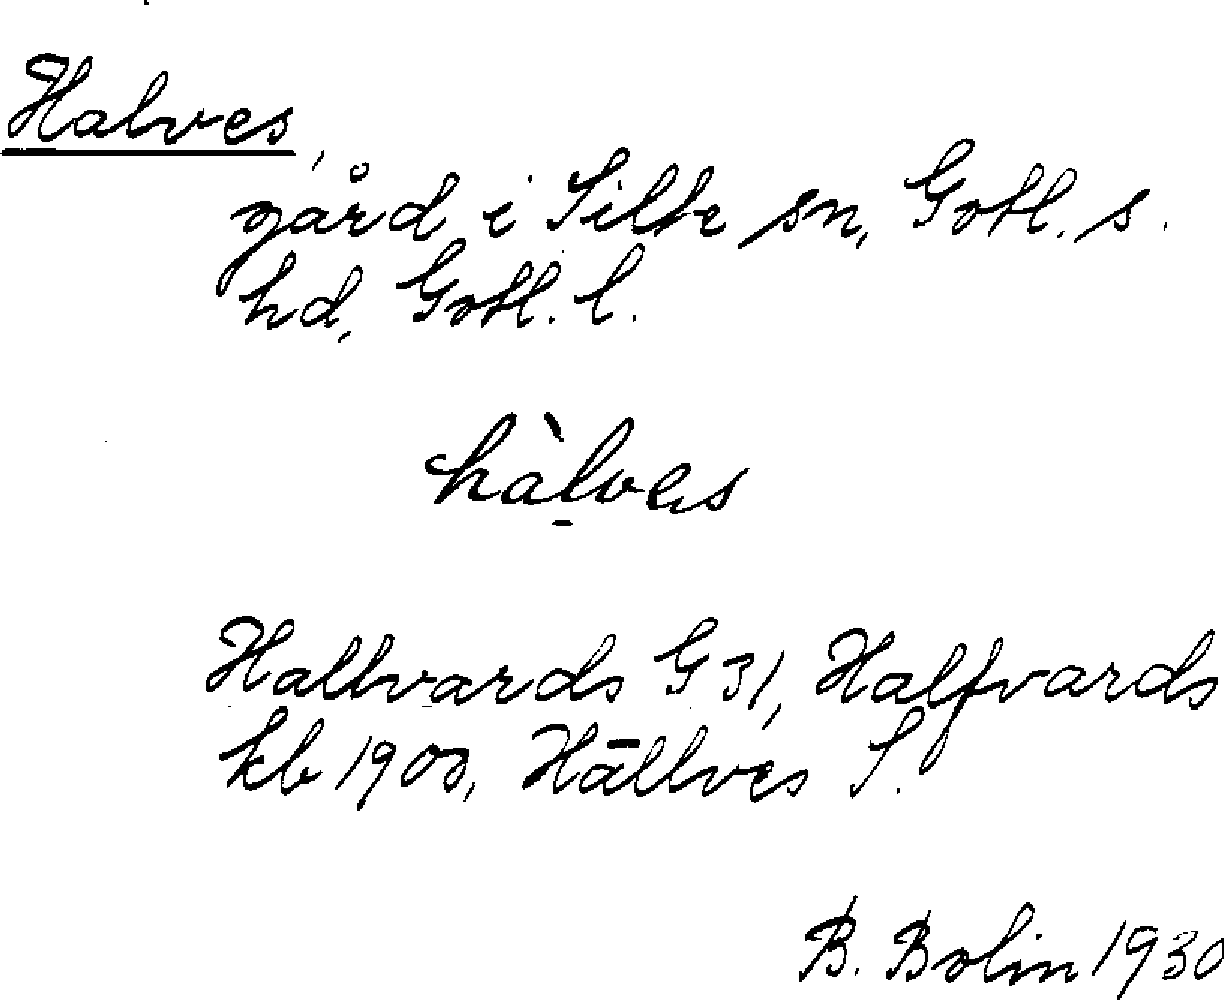 Halves,
gård i Silte sn, Gotl. s.
hd, Gotl. l.
hàlves
Hallvards G 31, Halfvards
kb 1900, Hällves S.
B. Bolin 1930